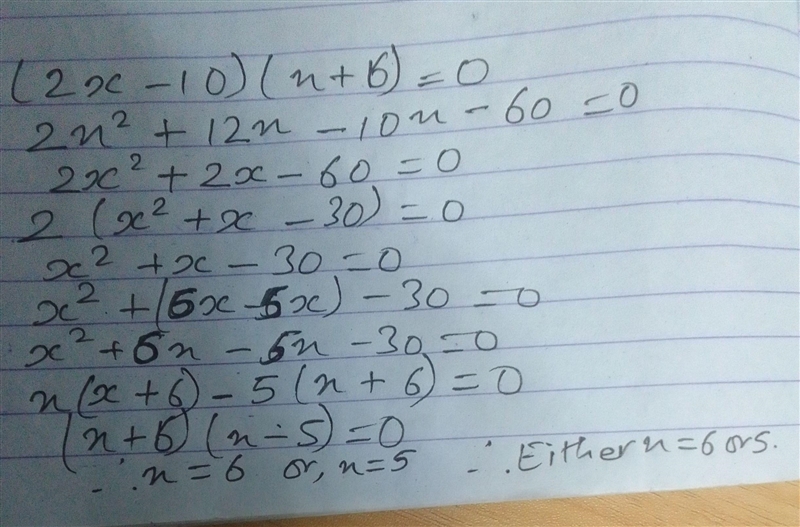 (2x - 10)(x + 6) = 0
2x² + 12x - 10x - 60 = 0
2x² + 2x - 60 = 0
2 (x² + x - 30) = 0
x² + x - 30 = 0
x² + (6x - 5x) - 30 = 0
x² + 6x - 5x - 30 = 0
x(x + 6) - 5(x + 6) = 0
(x + 6)(x - 5) = 0
∴ x = 6 or, x = 5 ∴ Either x = 6 or 5.